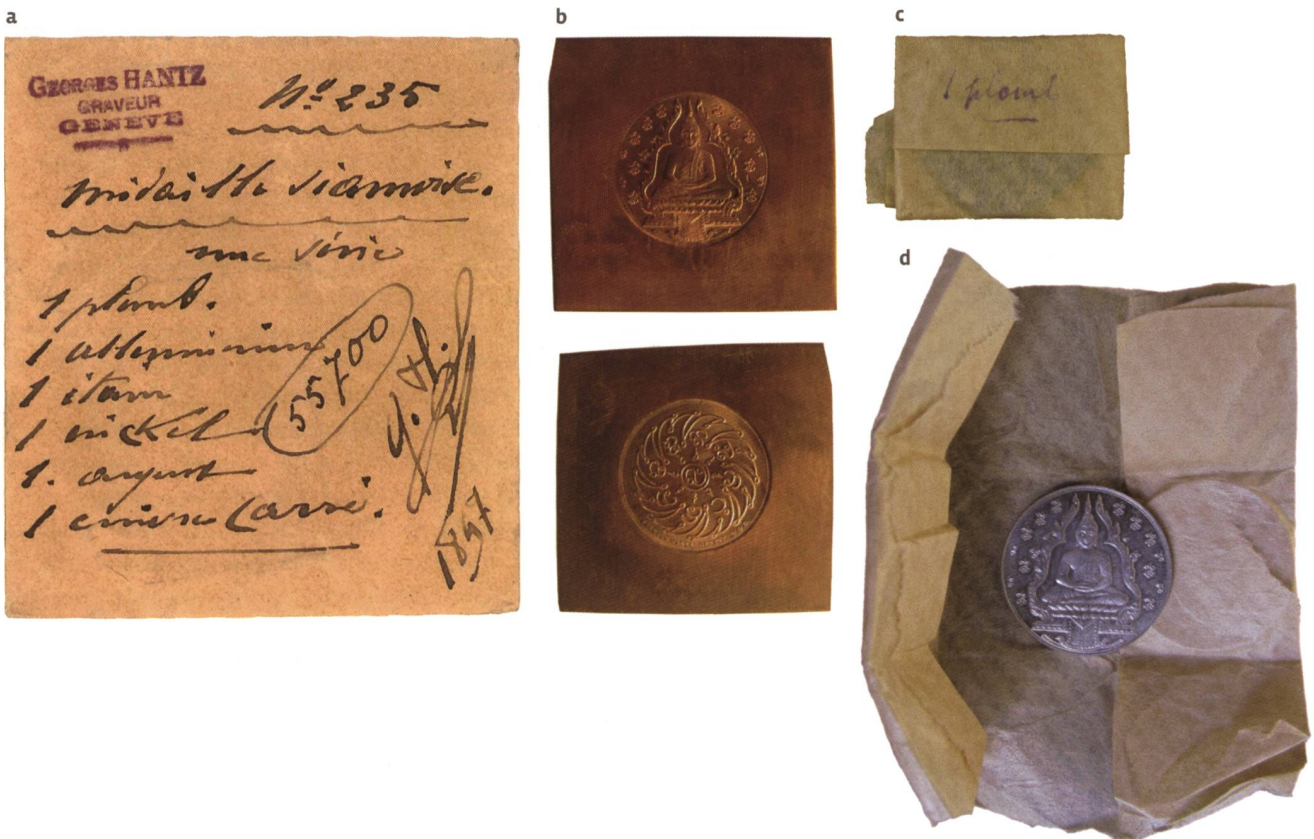 a
GEORGES HANTZ
GRAVEUR
GENEVE
No 235
médaille siamoise.
une série
1 plomb.
1 alluminium
1 étain
1 nickel
1. argent
1 cuivre carré.
55700
G. H.
1897
b
c
1 plomb
d